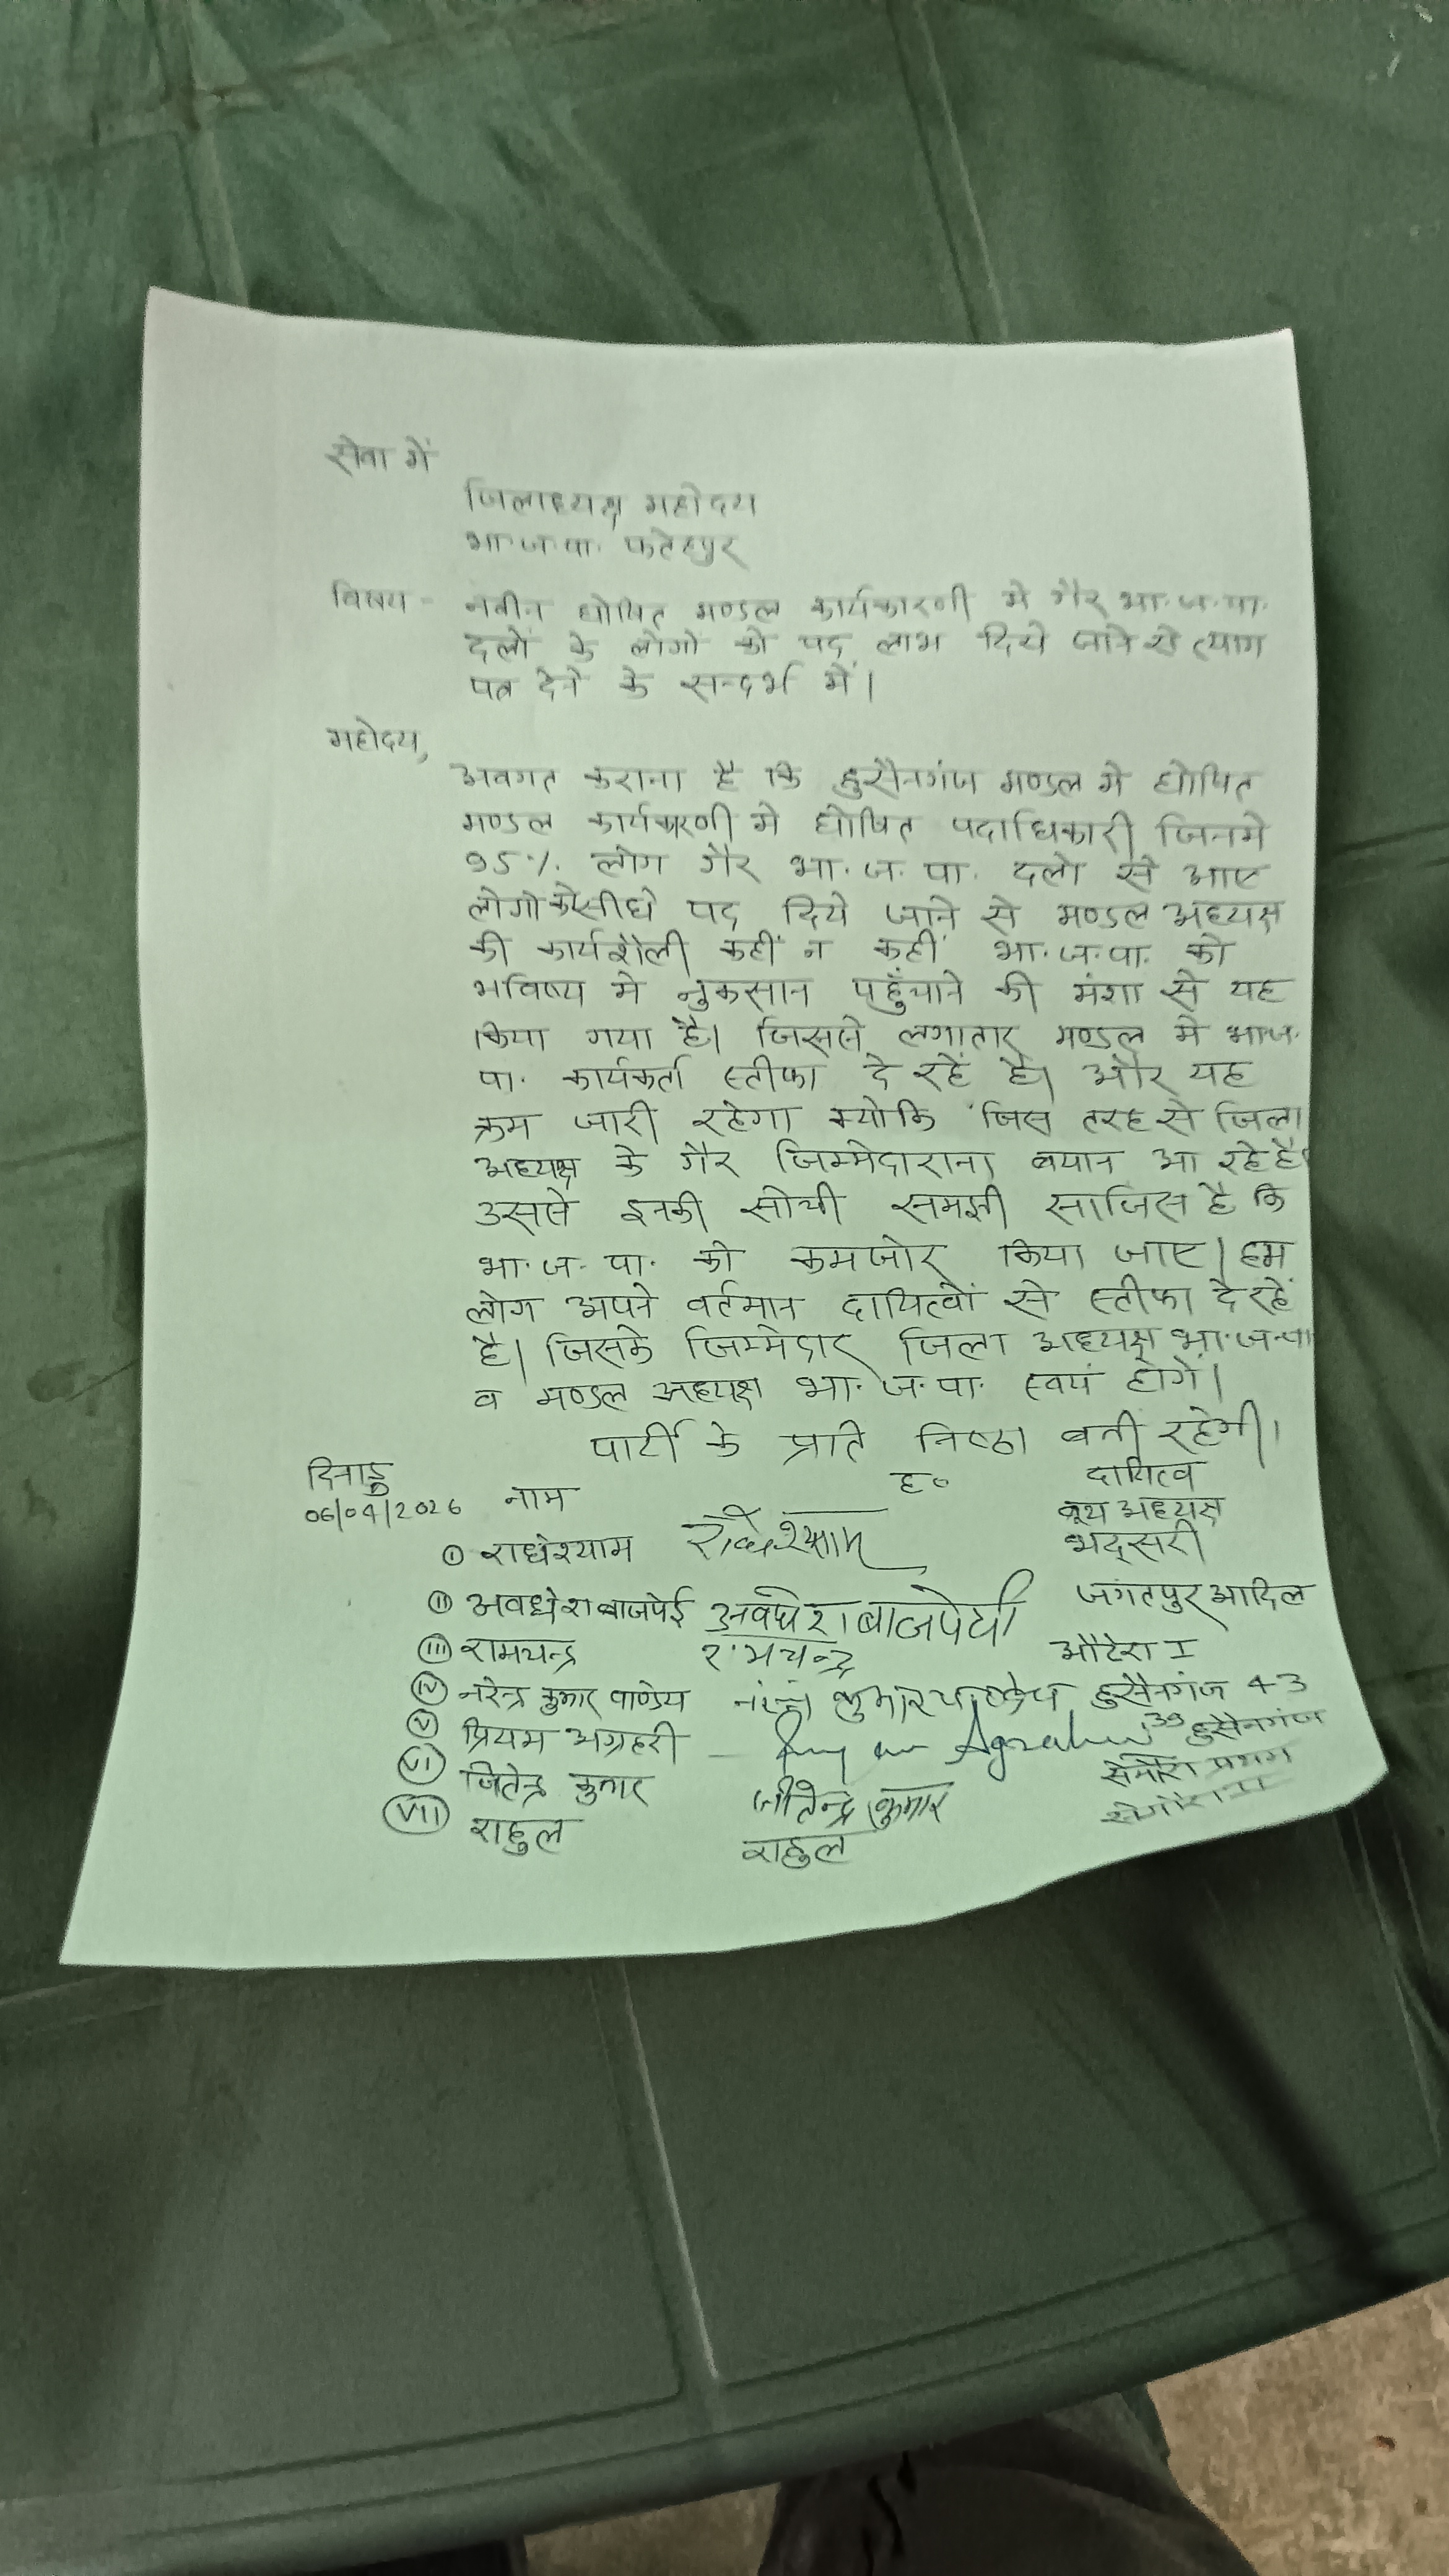 सेवा में
जिलाध्यक्ष महोदय
भा.ज.पा. फतेहपुर
विषय - नवीन घोषित मण्डल कार्यकारणी मे गैर भा.ज.पा.
दलों के लोगों को पद लाभ दिये जाने से त्याग
पत्र देने के सन्दर्भ में।
महोदय,
अवगत कराना है कि हुसैनगंज मण्डल मे घोषित
मण्डल कार्यकारणी मे घोषित पदाधिकारी जिनमे
95% लोग गैर भा.ज.पा. दलो से आए
लोगो को सीधे पद दिये जाने से मण्डल अध्यक्ष
की कार्यशैली कहीं न कहीं भा.ज.पा. को
भविष्य मे नुकसान पहुंचाने की मंशा से यह
किया गया है। जिससे लगातार मण्डल मे भा.ज.
पा. कार्यकर्ता स्तीफा दे रहें है। और यह
क्रम जारी रहेगा क्योकि जिस तरह से जिला
अध्यक्ष के गैर जिम्मेदाराना बयान आ रहे है।
उससे इनकी सोची समझी साजिस है कि
भा.ज.पा. को कमजोर किया जाए। हम
लोग अपने वर्तमान दायित्वों से स्तीफा दे रहें
है। जिसके जिम्मेदार जिला अध्यक्ष भा.ज.पा
व मण्डल अध्यक्ष भा.ज.पा. स्वयं होगें।
पार्टी के प्रति निष्ठा बनी रहेगी।
दिनाङ्क नाम ह० दायित्व
06/04/2026 बूथ अध्यक्ष
(I) राधेश्याम राधेश्याम भद्सरी
(II) अवधेश बाजपेई अवधेश बाजपेयी जगतपुर आदिल
(III) रामचन्द्र रामचन्द्र औटेरा I
(IV) नरेन्द्र कुमार पाण्डेय नरेन्द्र कुमार पाण्डेय हुसैनगंज 43
(V) प्रियम अग्रहरी - Agrahari 39 हुसैनगंज
(VI) जितेन्द्र कुमार जीतेन्द्र कुमार
(VII) राहुल राहुल